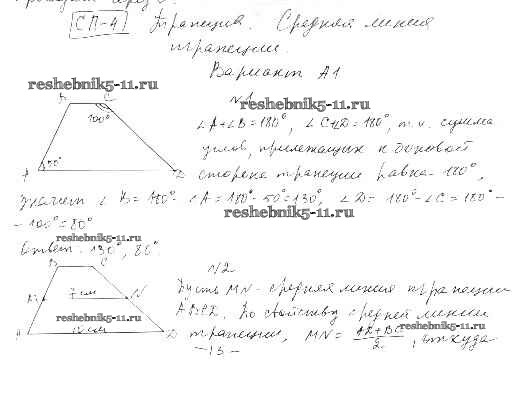 СП-4 Трапеция. Средняя линия
трапеции.
Вариант А1
reshebnik5-11.ru
B C
100°
50°
A D
№1
∠A+∠B=180°, ∠C+∠D=180°, т.к. сумма
reshebnik5-11.ru
углов, прилежащих к боковой
стороне трапеции равна 180°,
значит ∠B=180°-∠A=180°-50°=130°, ∠D=180°-∠C=180°-
reshebnik5-11.ru
-100°=80°
reshebnik5-11.ru
Ответ: 130°, 80°.
B C
7 см N
reshebnik5-11.ru
см
D
№2
Пусть MN - средняя линия трапеции
ABCD. По свойству средней линии
трапеции, MN = AD+BC/2, откуда
reshebnik5-11.ru
-13-